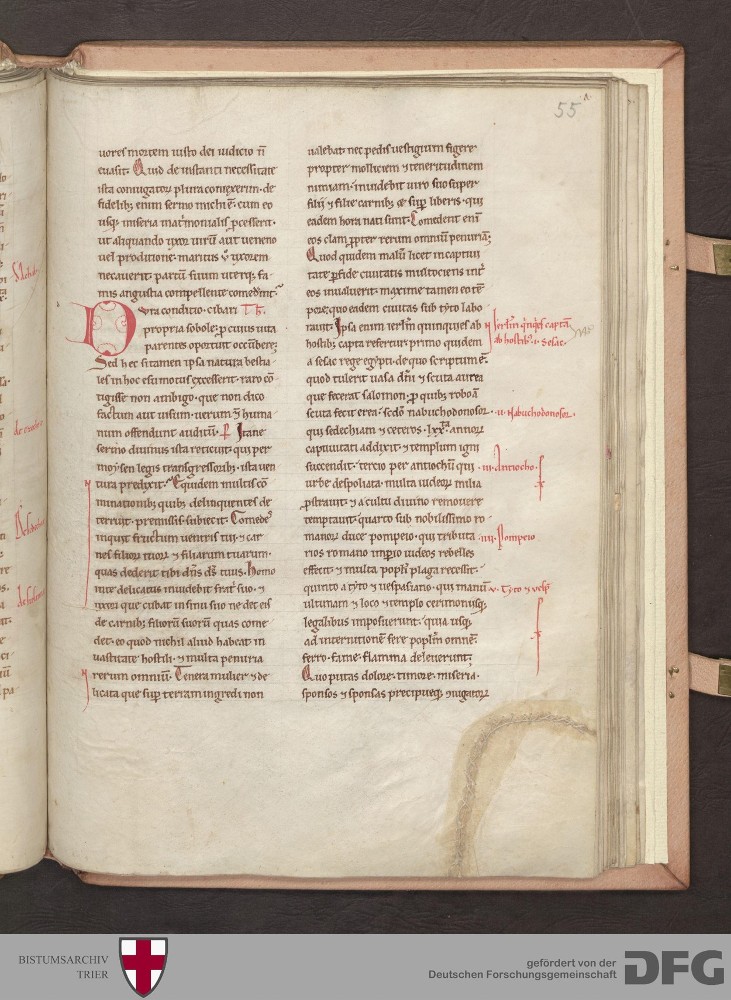 55
uores mortem iusto dei iudicio n̄
euasit. Quid de instanti necessitate
ista coniugatoꝝ plura conuexerim. de
fidelibꝫ enim sermo michi ē. cum eo
usqꝫ miseria mat̓monialis ꝓcesserit.
ut aliquando uxor uirū aut ueneno
uel proditione. maritus ū uxorem
necauerit. partū suum uterqꝫ fa-
mis angustia compellente comederint.
Dura conditio. cibari T h̄.
propria sobole. ꝓ cuius uita
parentes oportuit occūbere;
Sed hec si tamen ipsa natura bestia-
les in hoc esu motus excesserit. raro cō-
tigisse non ambigo. que non dico
factum aut uisum. uerum ꝫ huma-
num offendunt auditū. P̄. Itane
sermo diuinus ista reticuit. qui per
moysen legis transgressoribꝫ. ista uen
tura predixit. Equidem multis cō
minationibꝫ quibꝫ delinquentes de
terruit. premissis subiecit. Comedes
inquit fructum uentris tui. ⁊ car
nes filioꝝ tuoꝝ ⁊ filiarum tuarum.
quas dederit tibi dn̄s ds̄ tuus. Homo
inte delicatus inuidebit frat̓ suo. ⁊
uxori que cubat in sinu suo ne det eis
de carnibꝫ filiorū suorū quas come
det. eo quod nichil aliud habeat in
uastitate hostili. ⁊ multa penuria
rerum omniū. Tenera mulier ⁊ de
licata que suꝑ terram ingredi non
ualebat nec pedis uestigium figere
propter molliciem ⁊ teneritudinem
nimiam. inuidebit uiro suo super
filij ⁊ filie carnibꝫ ⁊ suꝑ liberis. qui
eadem hora nati sunt. Comedent enī
eos clam ꝓpter rerum omniū penuriā;
Quod quidem malū licet in captiui
tate ꝑfide ciuitatis multociens int̓
eos inualuerit. maxime tamen eo tē-
pore. quo eadem ciuitas sub tyto labo
rauit. Ipsa enim ierlm̄ quinquies ab
hostibꝫ capta refertur. primo quidem
a sesac rege egypti. de quo scriptum ē.
quod tulerit uasa dn̄i ⁊ scuta aurea
que fecerat salomon. ꝓ quibꝫ roboā
scuta fecit erea. scd̄o nabuchodonosor
qui sedechiam ⁊ ceteros. lxx. annoꝝ
captiuitati addixit. ⁊ templum igni
succendit. tercio per antiochū qui
urbe despoliata. multa iudeoꝝ milia
ꝓstrauit. ⁊ a cultu diuino remouere
temptauit. quarto sub nobilissimo ro
manoꝝ duce pompeio. qui tributa
rios romano imꝑio iudeos rebelles
effecit. ⁊ multa popl̓i plaga recessit.
quinto a tyto ⁊ uespasiano. qui manū
ultimam ⁊ loco ⁊ templo cerimoniisqꝫ
legalibus imposuerunt. quia usqꝫ
ad internitionē fere popl̓m omnē.
ferro. fame. flamma deleuerunt;
Quo putas dolore. timore. miseria.
sponsos ⁊ sponsas precipueqꝫ iugatoꝝ
Ierlm̄ q̓nq̓es capta
ab hostibꝫ. i. sesac.
.ii. Nabuchodonosor.
.iii. Antiocho.
.iiii. Pompeio
.v. Tyto ⁊ uesp̄
BISTUMSARCHIV
TRIER
gefördert von der
Deutschen Forschungsgemeinschaft
DFG